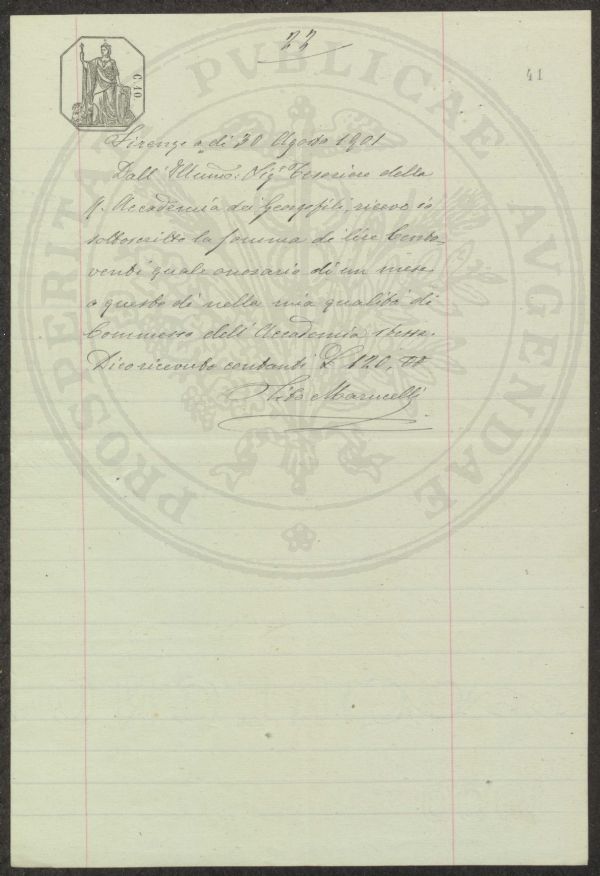 22
41
C. 10
PROSPERITATI PVBLICAE AVGENDAE
Firenze a dì 30 Agosto 1901
Dall' Illmo: Sig. Tesoriere della
R. Accademia dei Georgofili, riceve io
sottoscritto la somma di lire Cento
venti quale onorario di un mese
a questo dì nella mia qualità di
Commesso dell' Accademia stessa.
Dico ricevuto contanti £ 120,
Tito Marucelli